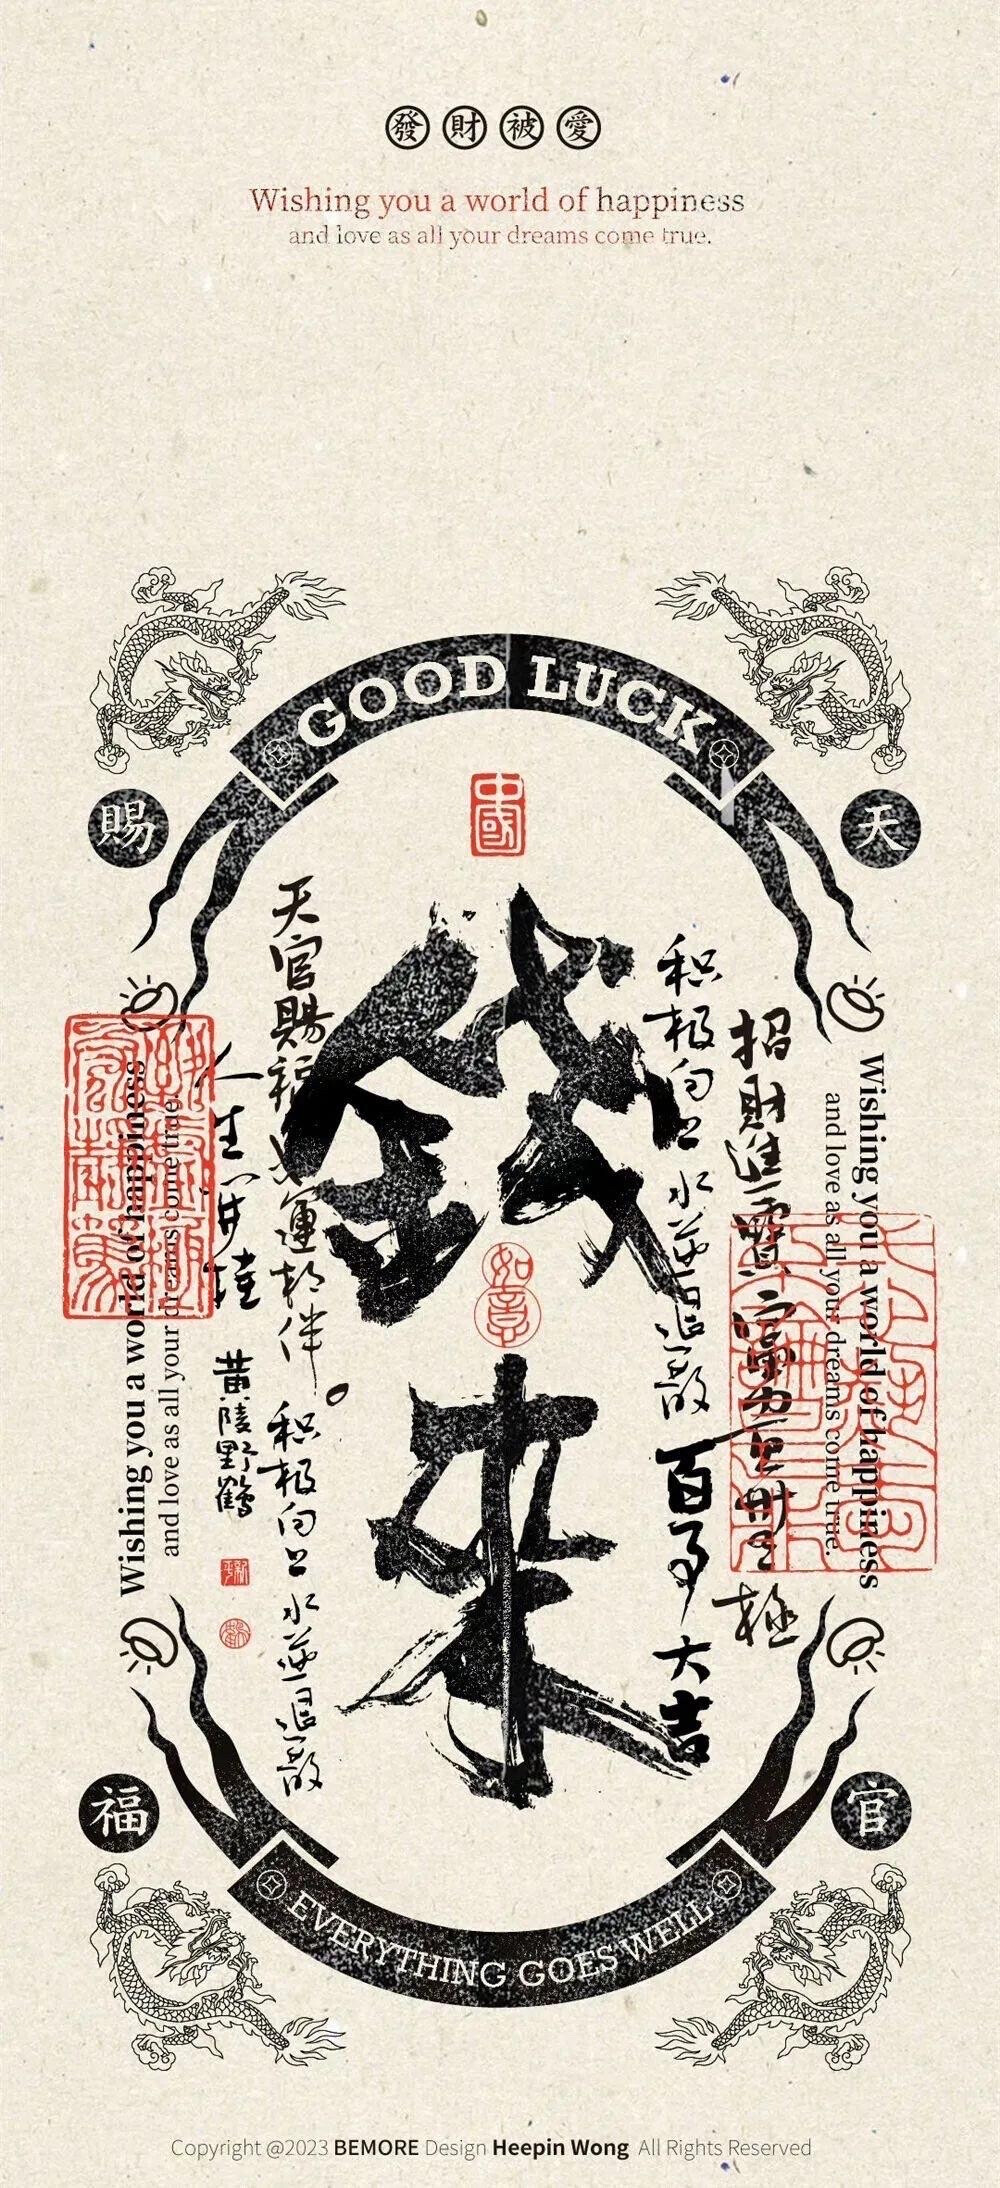 發財被愛
Wishing you a world of happiness
and love as all your dreams come true.
GOOD LUCK
賜
天
中國
錢來
如意
招財進寶
極
积极向上
百事大吉
天官賜福
運相伴
积极向上
人生一步
黄陵野鶴
Wishing you a world of happiness
and love as all your dreams come true.
Wishing you a world of happiness
and love as all your dreams come true.
福
官
EVERYTHING GOES WELL
Copyright @2023 BEMORE Design Heepin Wong All Rights Reserved